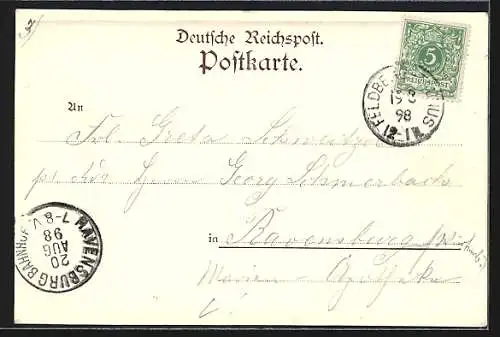 Deutsche Reichspost.
Postkarte.
5
REICHSPOST
FELDBE
19 8
98
12-1N
An
Frl. Greta Schweitzer
Herrn Georg Schmerbach
in Ravensburg
Marien-Apotheke
RAVENSBURG BAHNHOF
20
AUG
98
7-8V